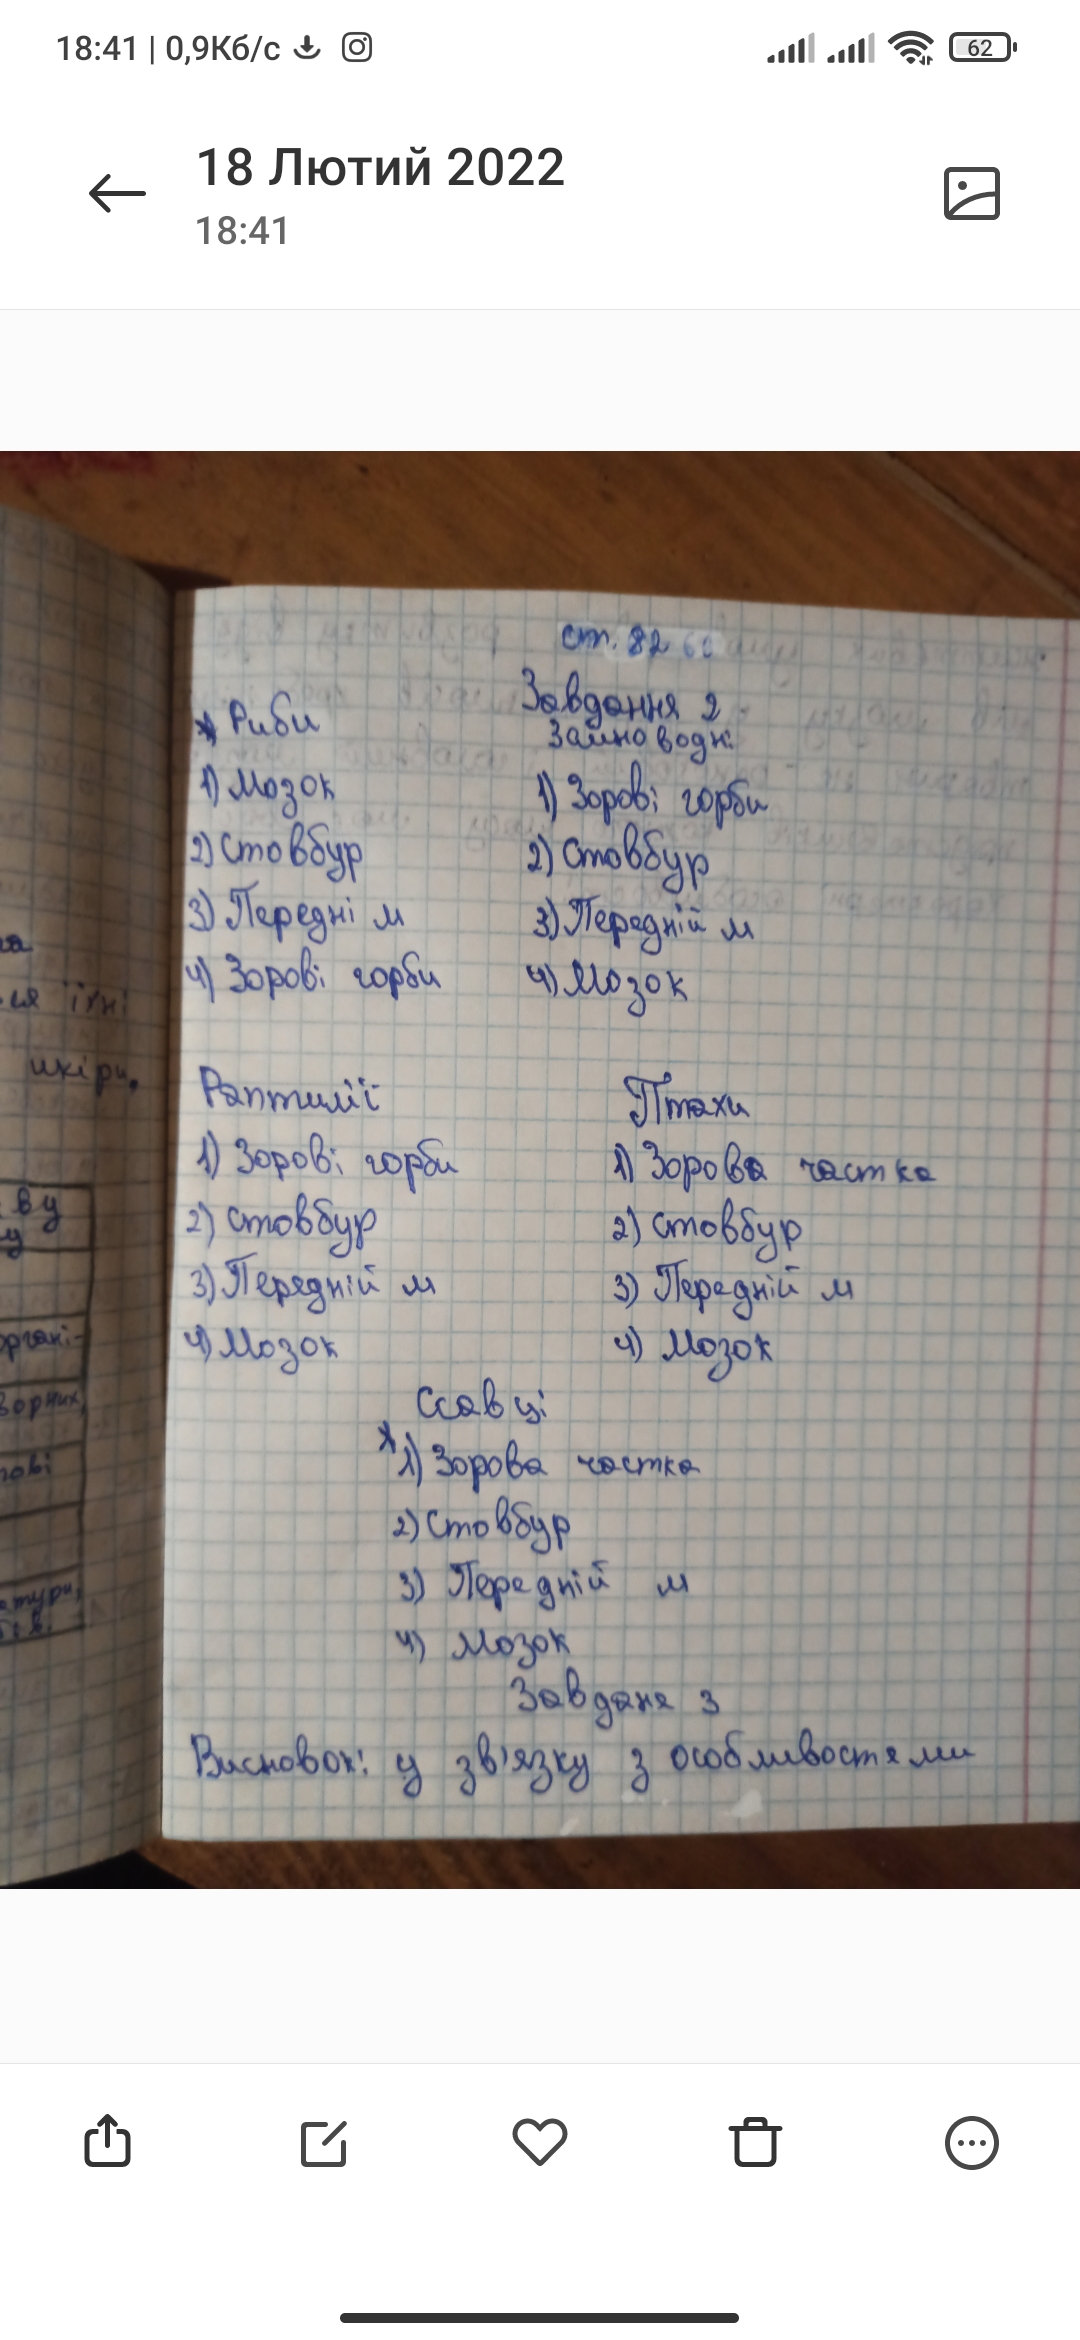 18:41 | 0,9Кб/с
62
18 Лютий 2022
18:41
ст. 82
Завдання 2
Риби
1) Мозок
2) Стовбур
3) Передні м
4) Зорові горби
Замноводні
1) Зорові горби
2) Стовбур
3) Передній м
4) Мозок
Раптилії
1) Зорові горби
2) Стовбур
3) Передній м
4) Мозок
Птахи
1) Зорова частка
2) Стовбур
3) Передній м
4) Мозок
Ссавці
1) Зорова частка
2) Стовбур
3) Передній м
4) Мозок
Завданя 3
Висновок: у зв'язку з особливостями
їхні
шкіри,
ву
у
органі-
ворних,